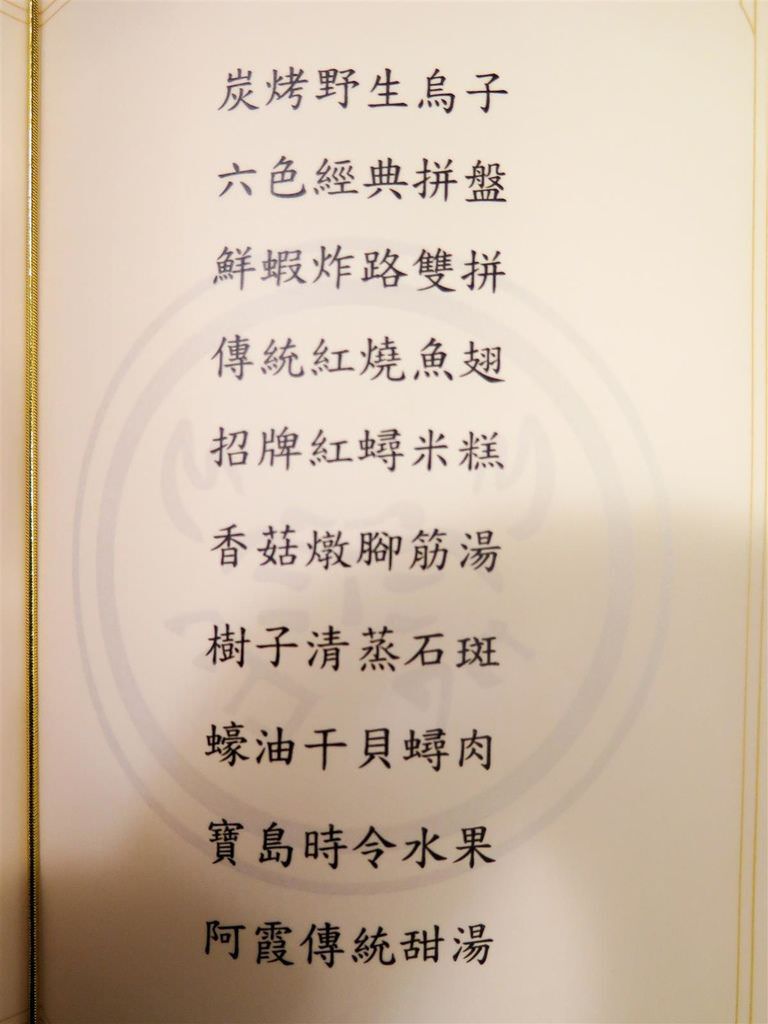 炭烤野生烏子
六色經典拼盤
鮮蝦炸路雙拼
傳統紅燒魚翅
招牌紅蟳米糕
香菇燉腳筋湯
樹子清蒸石斑
蠔油干貝蟳肉
寶島時令水果
阿霞傳統甜湯